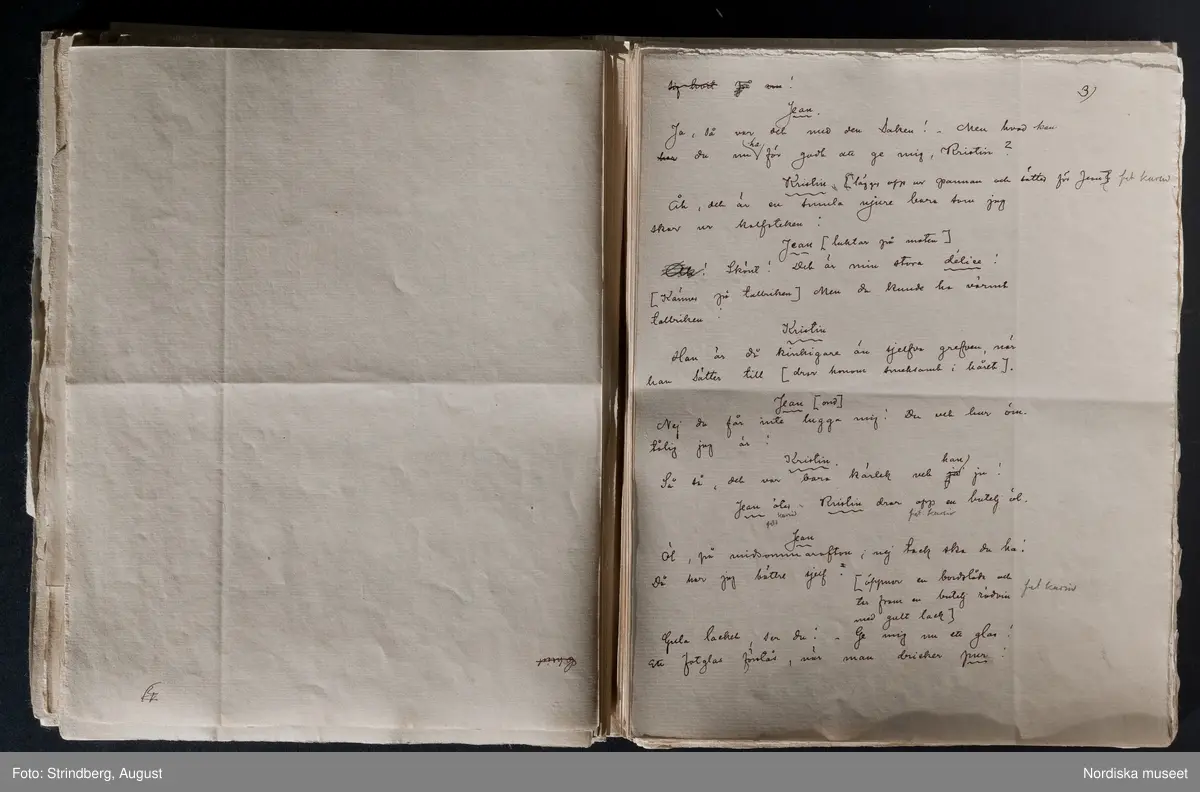 3)
Jean.
Ja, så var det med den saken! – Men hvad kan
du nu ha för godt att ge mig, Kristin?
Kristin [lägger opp ur pannan och sätter för Jean] fet kursiv
Åh, det är en smula njure bara som jag
skar ur kalfsteken!
Jean [luktar på maten]
Skönt! Det är min stora délice!
[Känner på tallriken] Men du kunde ha värmt
tallriken!
Kristin
Han är då kinkigare än sjelfva grefven, när
han sätter till [drar honom smeksamt i håret].
Jean [ond]
Nej du får inte lugga mig! Du vet hur öm-
tålig jag är!
Kristin.
Så så, det var bara kärlek vet han ju!
Jean äter. Kristin drar opp en butelj öl.
fet kursiv fet kursiv
Jean
Öl, på midsommarafton; nej tack ska du ha!
Då har jag bättre sjelf! [öppnar en bordslåda och
ter fram en butelj rödvin fet kursiv
med gult lack]
Gula lacket, ser du! – Ge mig nu ett glas!
Ett fotglas förstås, när man dricker pur!
Foto: Strindberg, August
Nordiska museet